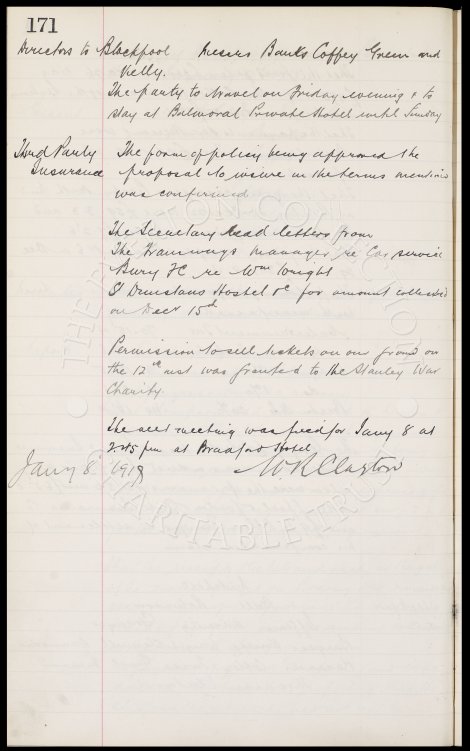 171
Directors to Blackpool Messrs Banks Coffey Green and
Kelly.
The party to travel on Friday evening & to
stay at Balmoral Private Hotel until Sunday
Third Party The form of policy being approved the
Insurance proposal to insure on the terms mentioned
was confirmed
The Secretary read letters from
The Tramways Manager re Car service
Bury FC re Wm Wright
St Dunstans Hostel re for amount collected
on Decr 15th
Permission to sell tickets on our ground on
the 12th inst was granted to the Stanley War
Charity.
The next meeting was fixed for Jany 8 at
2.45 pm at Bradford Hotel
Jany 8 1918 W R Clayton
CHARITABLE TRUST